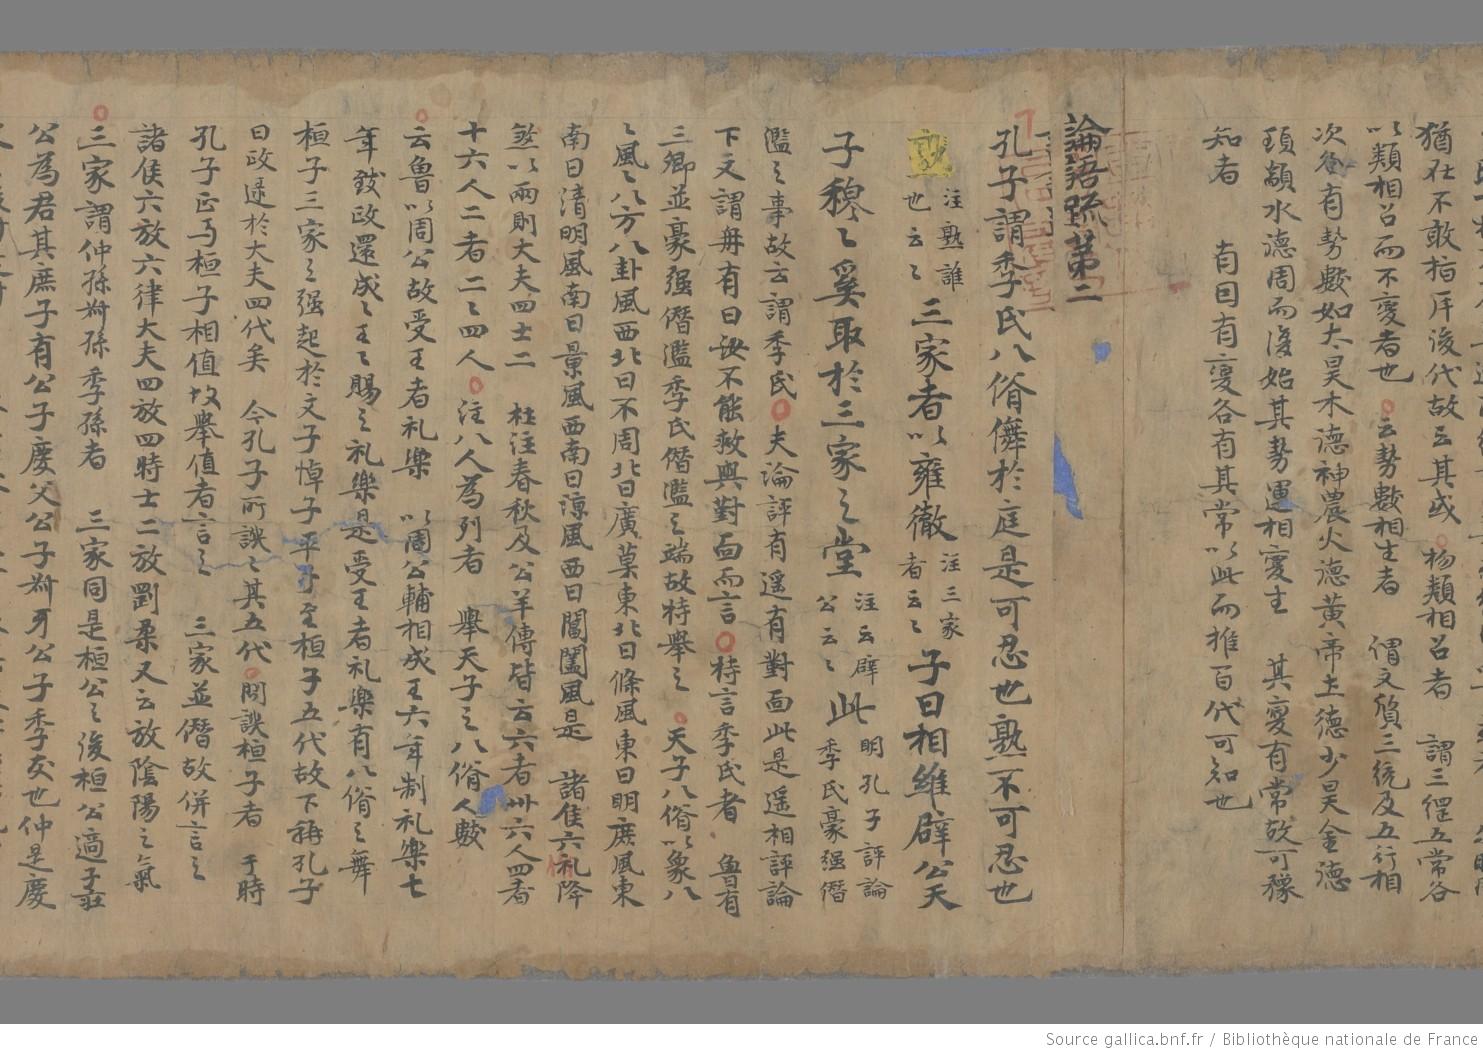 猶在不敢指斥後代故云其或 ○ 物類相召者 謂三綱五常各
以類相召而不變者也 ○ 云勢數相生者 謂文質三統及五行相
次各有勢數如太昊木德神農火德黃帝土德少昊金德
顓頊水德周而復始其勢運相變生 其變有常故可豫
知者 有因有變各有其常以此而推百代可知也
論語疏苐二
孔子謂季氏八佾儛於庭是可忍也熟不可忍也
注熟誰
也云〻
三家者以雍徹
注三家
者云〻
子曰相維辟公天
子穆〻奚取於三家之堂
注云辟
公云〻
此
明孔子評論
季氏豪强僭
濫之事故云謂季氏 ○ 夫論評有遥有對面此是遥相評論
下文謂冉有曰汝不能救與對面而言 ○ 特言季氏者 魯有
三卿並豪强僭濫季氏僭濫之端故特舉之 ○ 天子八佾以象八
〻風〻八方八卦風西北曰不周北曰廣莫東北曰條風東曰明庶風東
南曰清明風南曰景風西南曰凉風西曰閶闔風是 諸侯六礼降
煞以兩則大夫四士二 杜注春秋及公羊傳皆云六者卅六人四者
十六人二者二〻四人 ○ 注八人為列者 舉天子之八佾人數
○ 云魯以周公故受王者礼樂 以周公輔相成王六年制礼樂七
年致政還成〻王〻賜之礼樂是受王者礼樂有八佾之舞
桓子三家之强起於文子悼子平子至桓子五代故下稱孔子
曰政逮於大夫四代矣 今孔子所譏〻其五代 ○ 問譏桓子者 于時
孔子正与桓子相值故舉值者言之 三家並僭故併言之
諸侯六放六律大夫四放四時士二放剛柔又云放陰陽之氣
○ 三家謂仲孫叔孫季孫者 三家同是桓公之後桓公適子莊
公為君其庶子有公子慶父公子叔牙公子季友也仲是慶
Source gallica.bnf.fr / Bibliothèque nationale de France